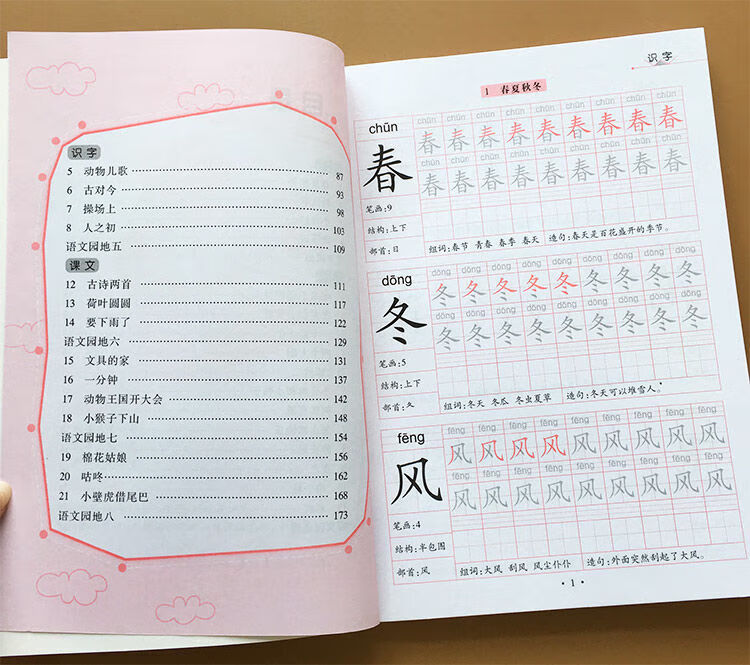 识字
5 动物儿歌 87
6 古对今 93
7 操场上 98
8 人之初 103
语文园地五 109
课文
12 古诗两首 111
13 荷叶圆圆 117
14 要下雨了 122
语文园地六 129
15 文具的家 131
16 一分钟 137
17 动物王国开大会 142
18 小猴子下山 148
语文园地七 154
19 棉花姑娘 156
20 咕咚 162
21 小壁虎借尾巴 168
语文园地八 173
识字
1 春夏秋冬
chūn chūn chūn chūn chūn chūn chūn chūn chūn chūn
春 春 春 春 春 春 春 春 春 春
chūn chūn chūn chūn chūn chūn chūn chūn chūn
春 春 春 春 春 春 春 春 春
笔画:9
结构:上下
部首:日 组词:春节 青春 春季 春天 造句:春天是百花盛开的季节。
dōng dōng dōng dōng dōng dōng dōng dōng dōng dōng
冬 冬 冬 冬 冬 冬 冬 冬 冬 冬
dōng dōng dōng dōng dōng dōng dōng dōng dōng
冬 冬 冬 冬 冬 冬 冬 冬 冬
笔画:5
结构:上下
部首:夂 组词:冬天 冬瓜 冬虫夏草 造句:冬天可以堆雪人。
fēng fēng fēng fēng fēng fēng fēng fēng fēng fēng
风 风 风 风 风 风 风 风 风 风
fēng fēng fēng fēng fēng fēng fēng fēng fēng
风 风 风 风 风 风 风 风 风
笔画:4
结构:半包围
部首:风 组词:大风 刮风 风尘仆仆 造句:外面突然刮起了大风。
·1·